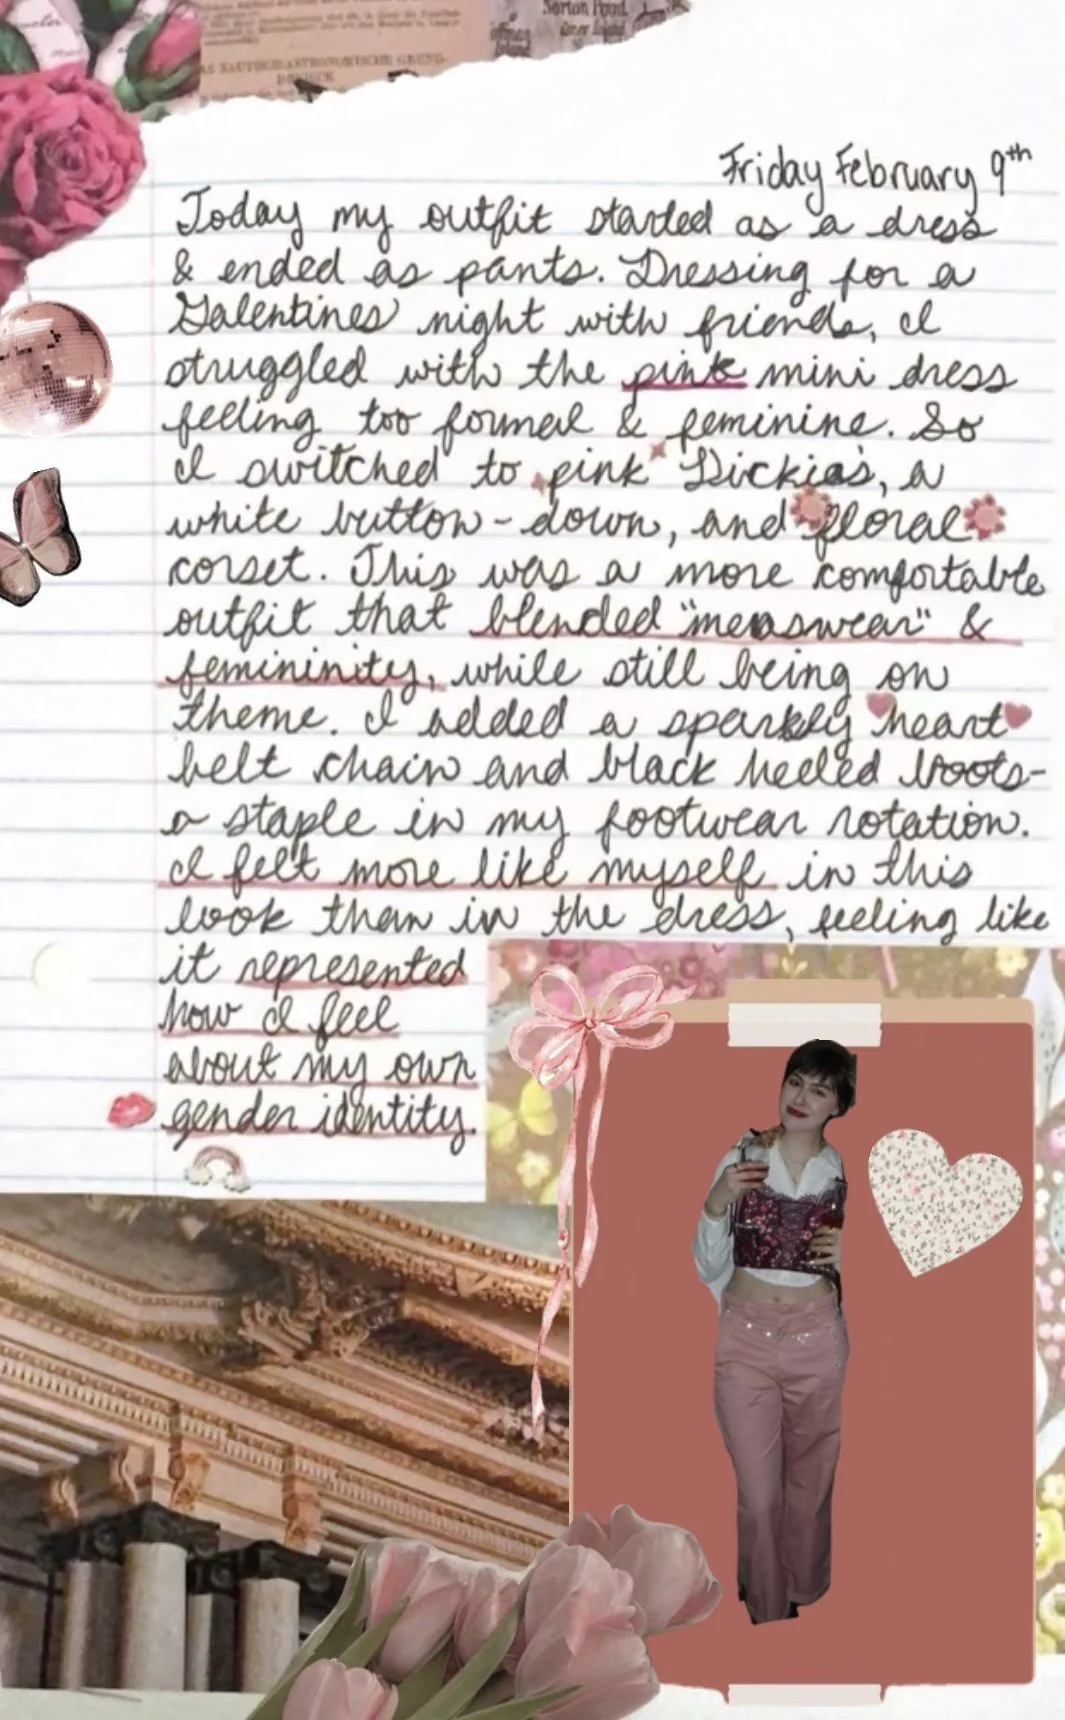 Norton Point
Coney Island
Hoffman
Island
AS NAUTISCH-ASTRONOMISCHE GRUND-
DREIECK
Friday February 9th
Today my outfit started as a dress
& ended as pants. Dressing for a
Galentines night with friends, I
struggled with the pink mini dress
feeling too formal & feminine. So
I switched to pink Dickies, a
white button-down, and floral
corset. This was a more comfortable
outfit that blended "menswear" &
femininity, while still being on
theme. I added a sparkly heart
belt chain and black heeled boots-
a staple in my footwear rotation.
I felt more like myself in this
look than in the dress, feeling like
it represented
how I feel
about my own
gender identity.